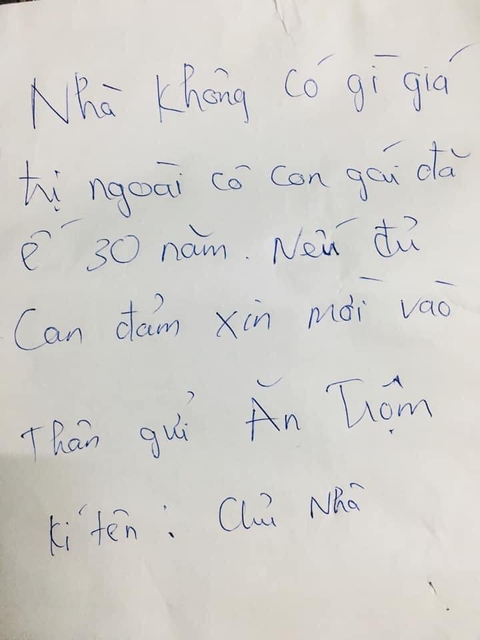 Nhà không có gì giá
trị ngoài cô con gái đã
ế 30 năm. Nếu đủ
Can đảm xin mời vào
Thân gửi Ăn Trộm
kí tên : Chủ Nhà